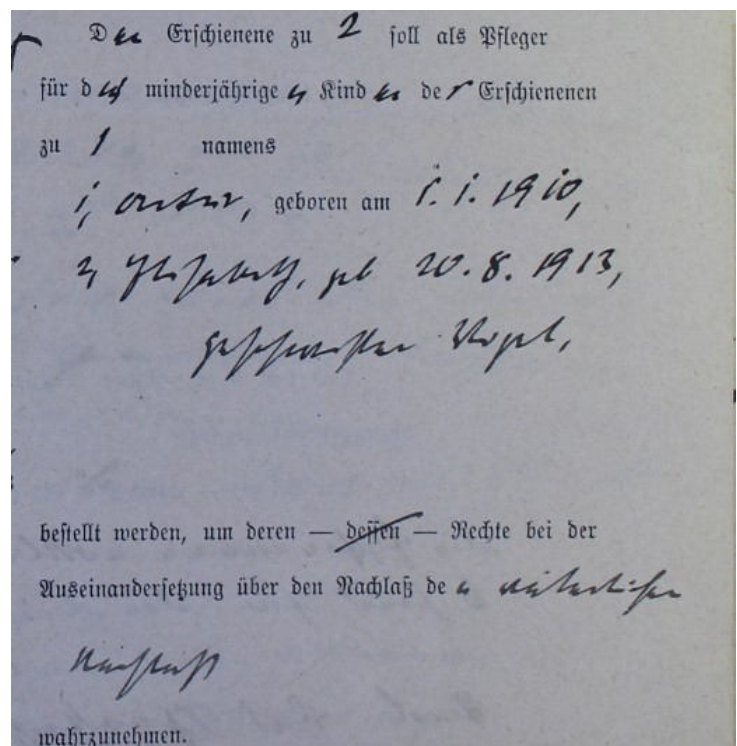 Der Erschienene zu 2 soll als Pfleger
für die minderjährigen Kinder der Erschienenen
zu 1 namens
1, Artur, geboren am 1. 1910,
2, Elisabeth, geb 20. 8. 1913,
Geschwister Vogel,
bestellt werden, um deren — dessen — Rechte bei der
Auseinandersetzung über den Nachlaß den väterlichen
Nachlaß
wahrzunehmen.